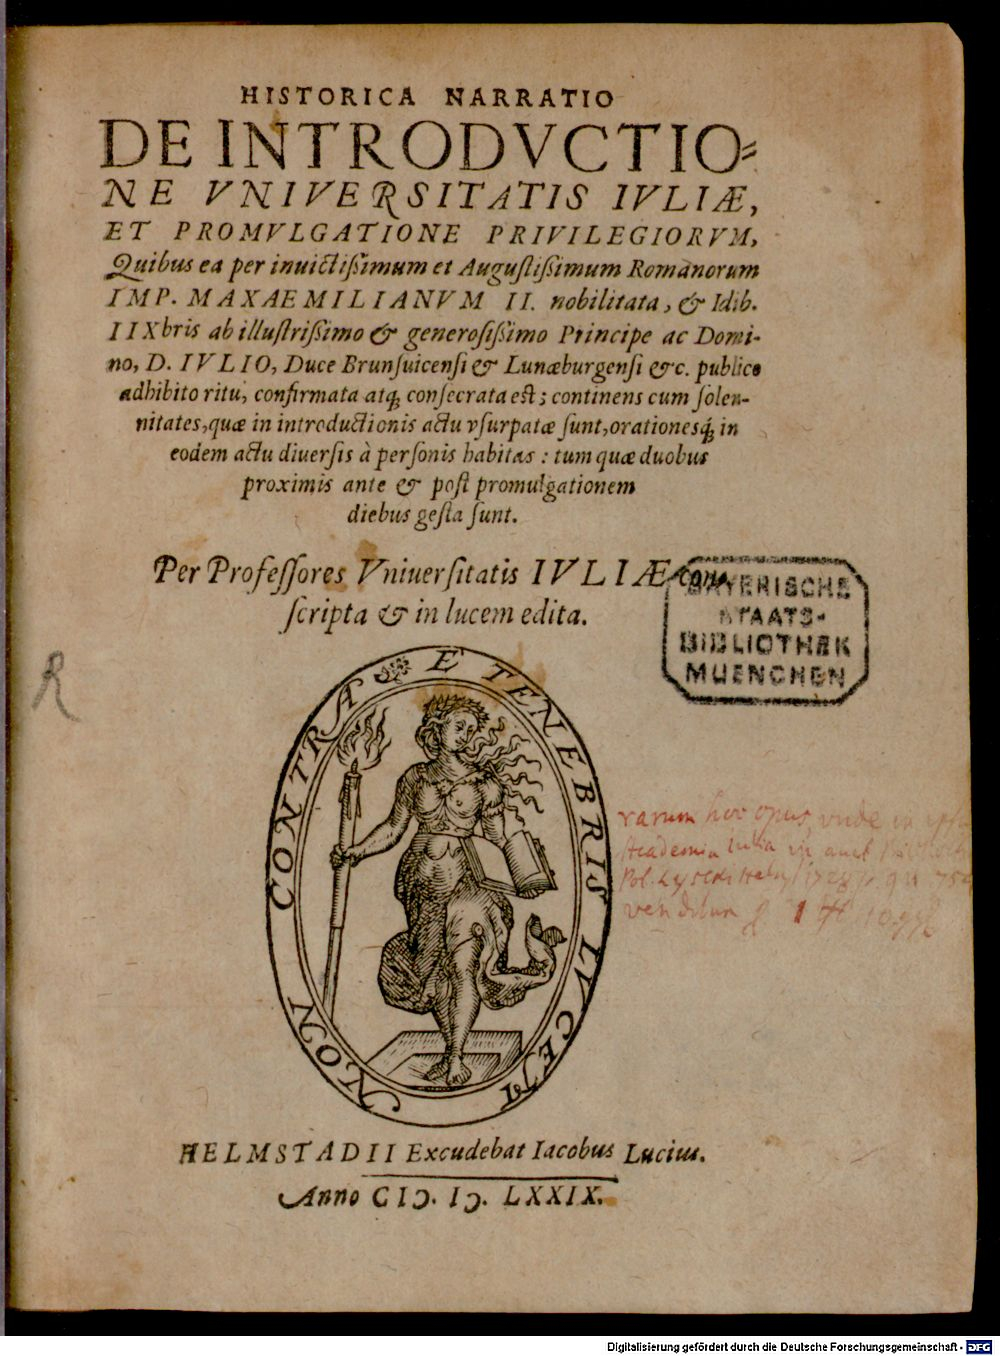 HISTORICA NARRATIO
DE INTRODVCTIO=
NE VNIVERSITATIS IVLIÆ,
ET PROMVLGATIONE PRIVILEGIORVM,
Quibus ea per inuictißimum et Auguſtißimum Romanorum
IMP. MAXAEMILIANVM II. nobilitata, & Idib.
IIXbris ab illuſtrißimo & generoſißimo Principe ac Domi-
no, D. IVLIO, Duce Brunſuicenſi & Lunæburgenſi &c. publico
adhibito ritu, confirmata atq; conſecrata eſt; continens cum ſolen-
nitates, quæ in introductionis actu vſurpatæ ſunt, orationesq; in
eodem actu diuerſis à perſonis habitas : tum quæ duobus
proximis ante & poſt promulgationem
diebus geſta ſunt.
Per Profeſſores Vniuerſitatis IVLIÆ con-
ſcripta & in lucem edita.
BAYERISCHE
STAATS-
BIBLIOTHEK
MUENCHEN
R
C NON CONTRA E TENEBRIS LVCEM
rarum hoc opus, unde in ipsa
Academia Iulia
Pol. Lyseri
venditum
HELMSTADII Excudebat Iacobus Lucius.
Anno CIↃ. IↃ. LXXIX.
Digitalisierung gefördert durch die Deutsche Forschungsgemeinschaft - DFG